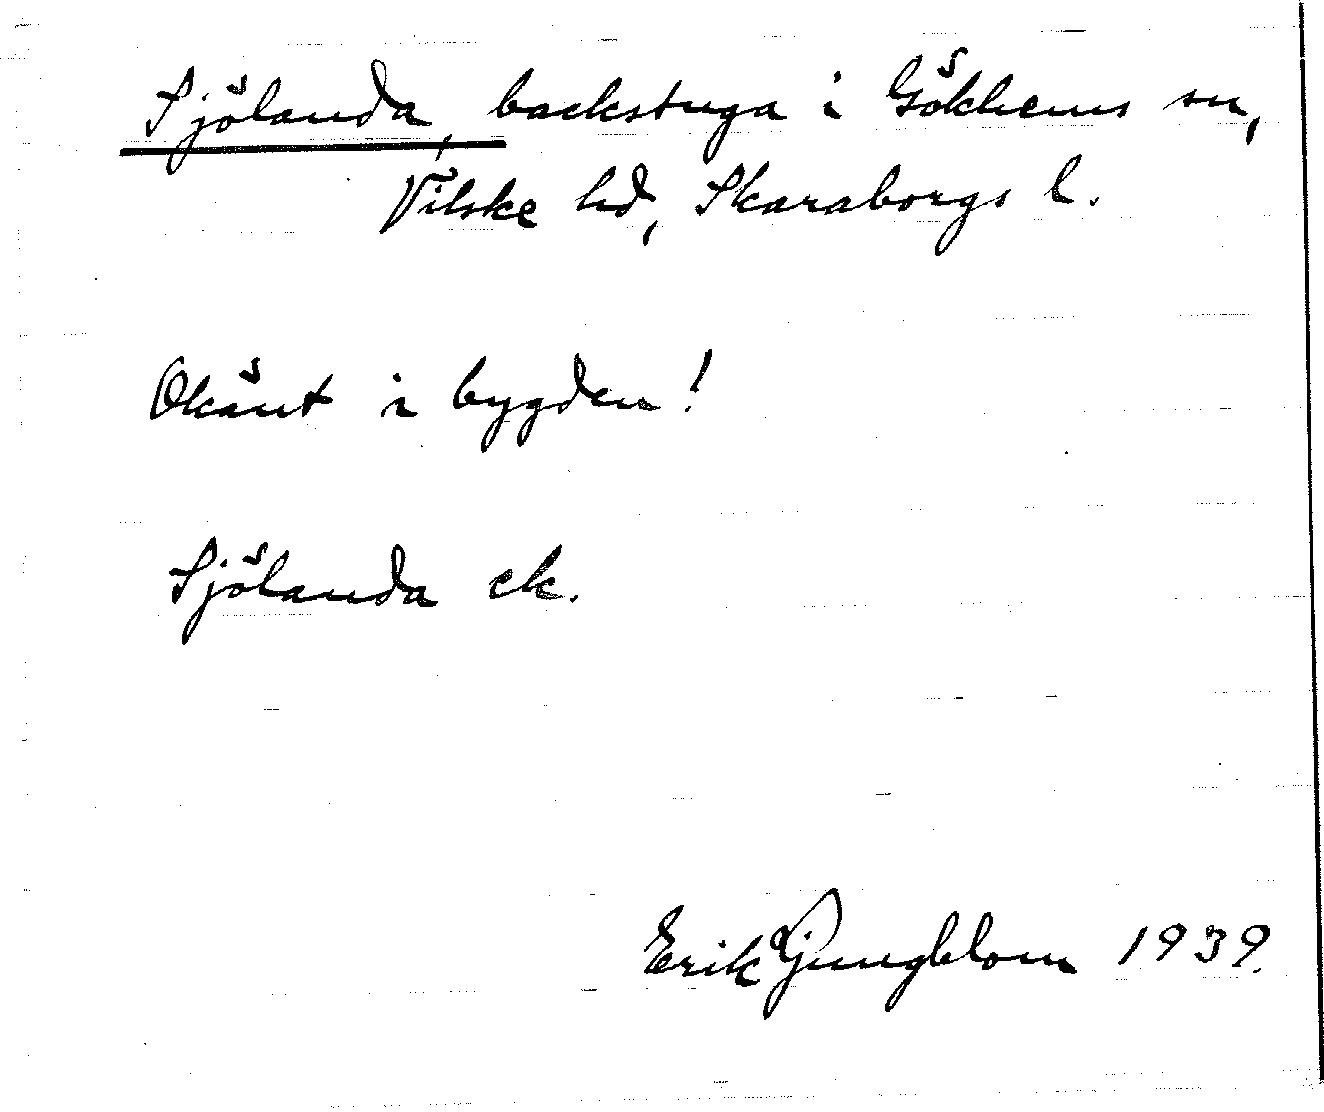 Sjölanda, backstuga i Gökhems sn,
Vilske hd, Skaraborgs l.
Okänt i bygden!
Sjölanda ek.
Erik Ljungblom 1939.